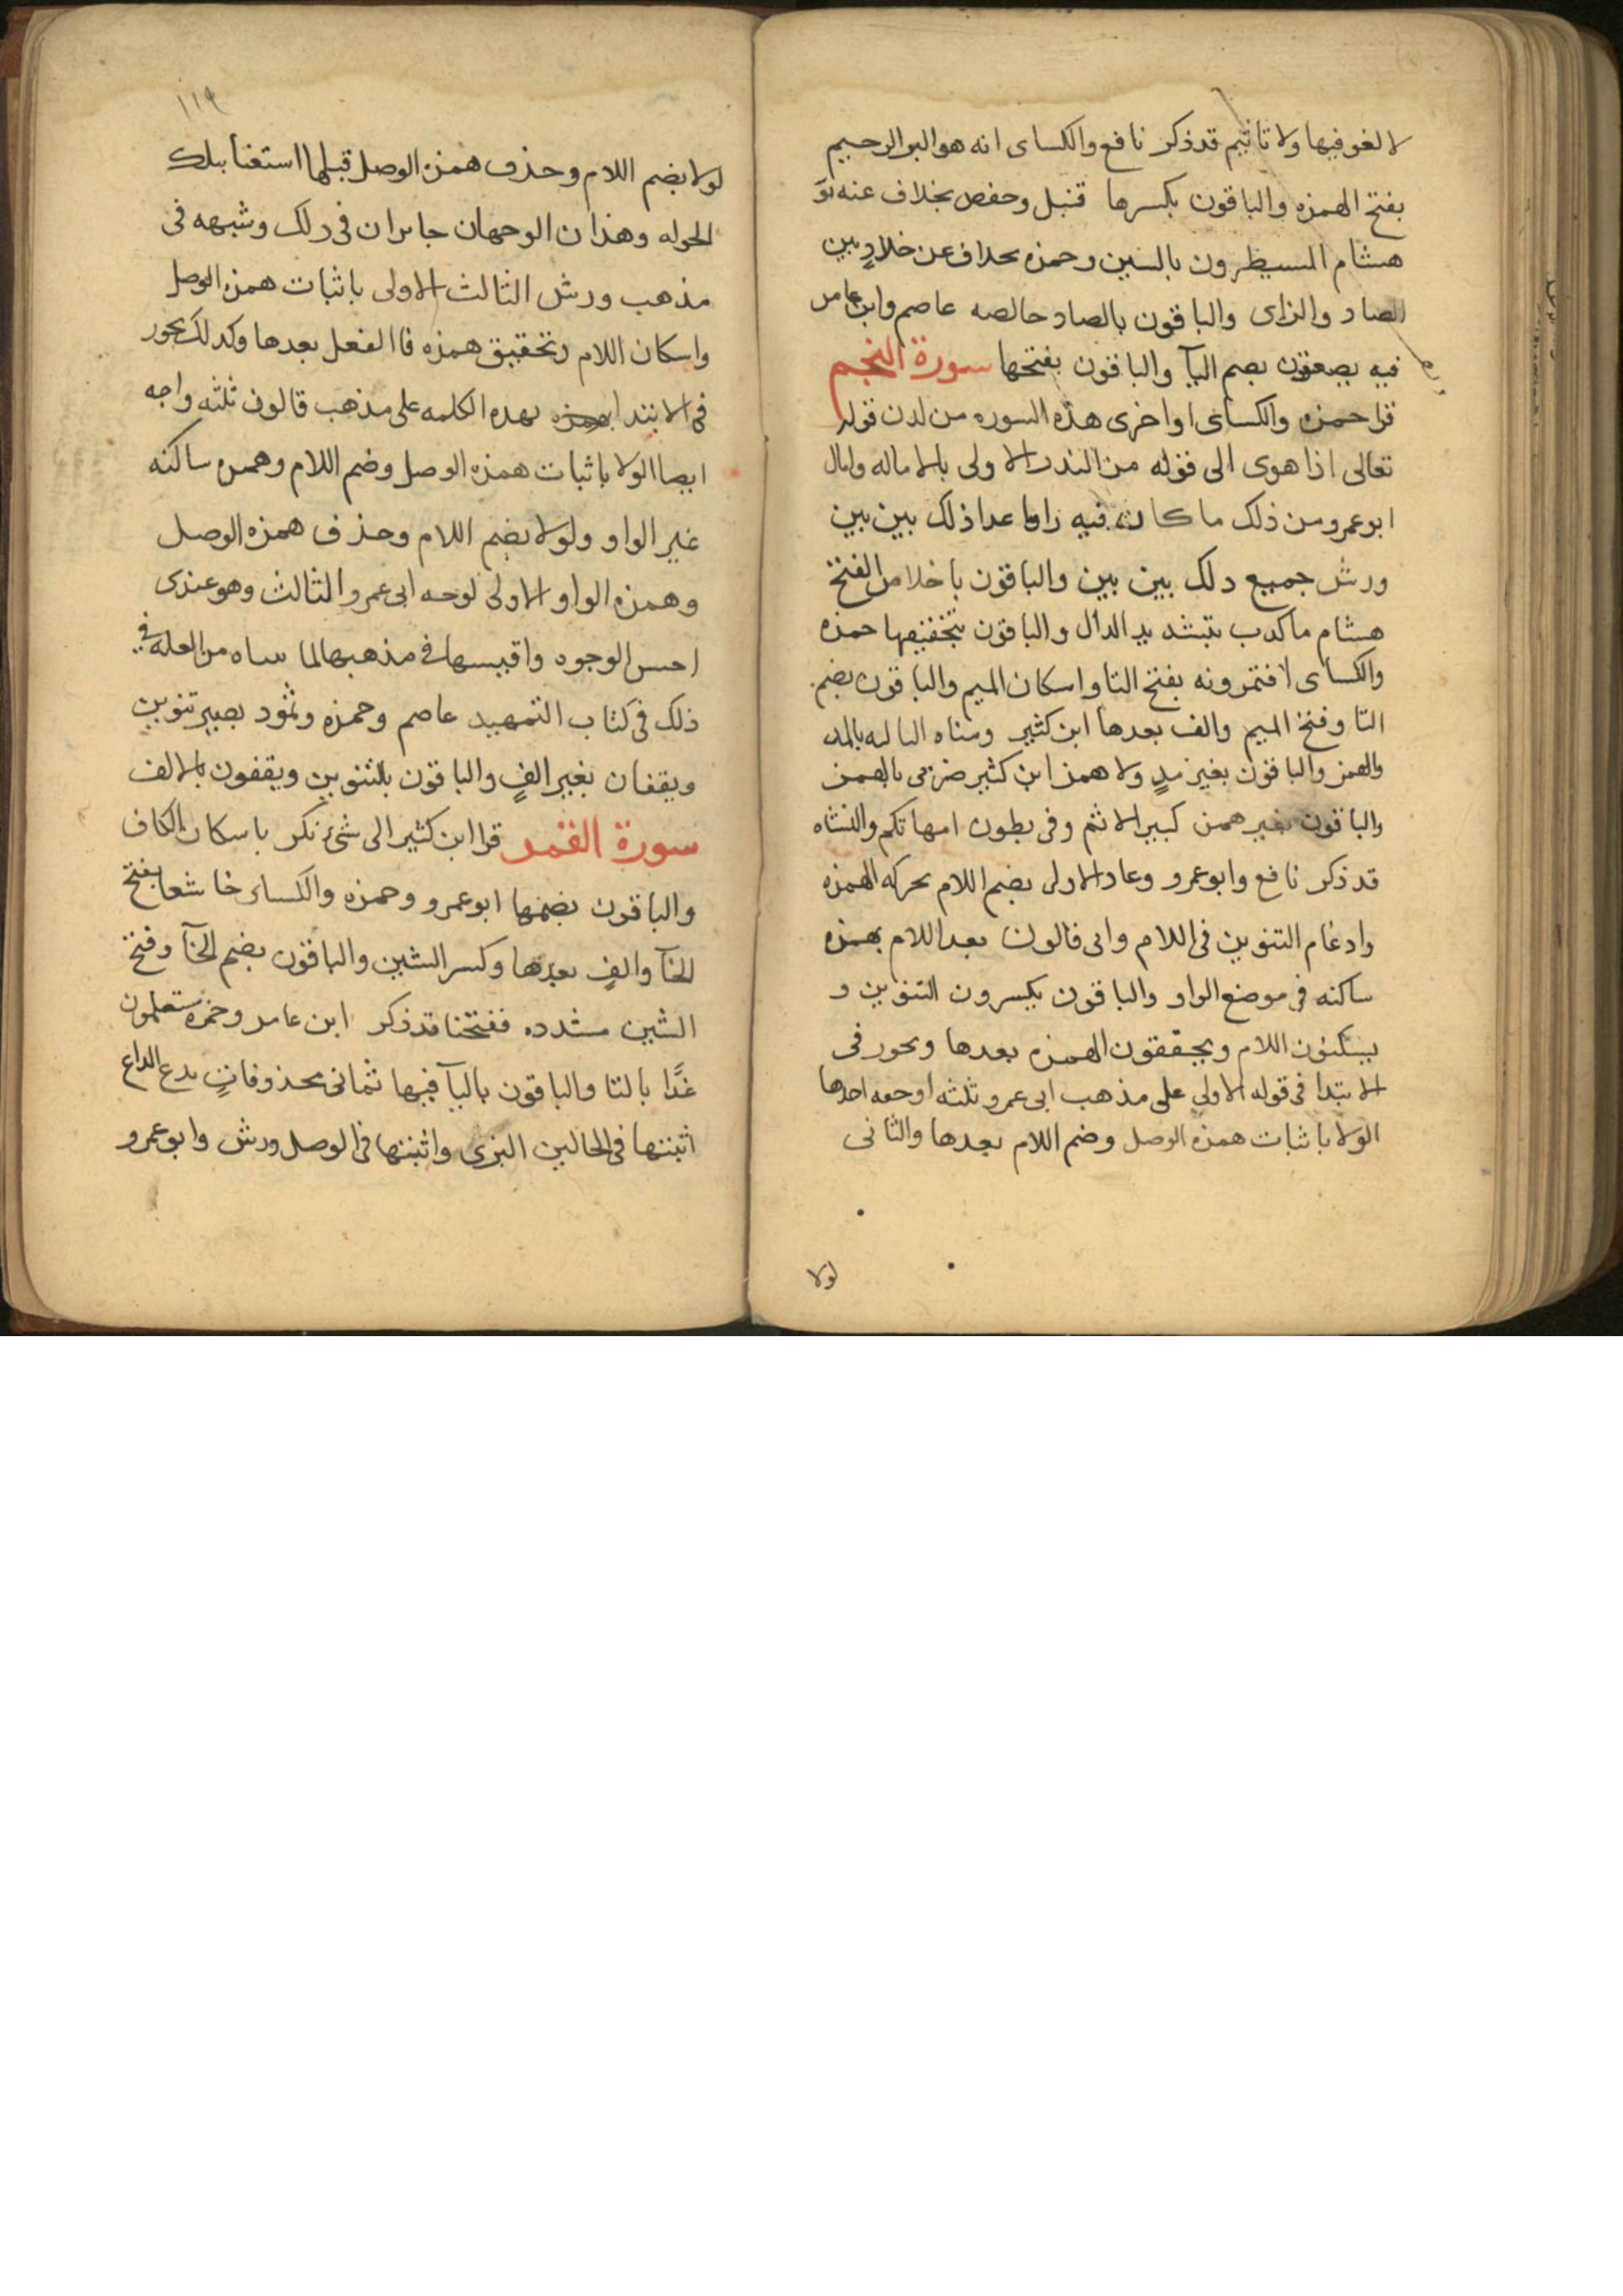 لا لغو فيها ولا تاثيم قد ذكر نافع والكساى انه هو البر الرحيم
بفتح الهمزه والباقون بكسرها قنبل وحفص بخلاف عنه
هشام المسيطرون بالسين وحمزه بخلاف عن خلادٍ بين
الصاد والزاى والباقون بالصاد خالصه عاصم وابن عامر
فيه يصعقون بضم اليآ والباقون بفتحها سورة النجم
قرا حمزه والكساى اواخرى هذه السوره من لدن قوله
تعالى اذا هوى الى قوله من النذر الاولى بالاماله وامال
ابو عمرو من ذلك ما كان فيه را وما عدا ذلك بين بين
ورش جميع ذلك بين بين والباقون باخلاص الفتح
هشام ما كدب بتشديد الدال والباقون بتخفيفها حمزه
والكساى افتمرونه بفتح التا واسكان الميم والباقون بضم
التا وفتح الميم والف بعدها ابن كثير ومناه الثالثه بالمد
والهمز والباقون بغير مدٍ ولا همز ابن كثير ضزىى بالهمز
والباقون بغير همز كبير الاثم وفى بطون امهاتكم والنشاه
قد ذكر نافع وابو عمرو وعاد الاولى بضم اللام بحركه الهمزه
وادغام التنوين فى اللام واتى قالون بعد اللام بهمزه
ساكنه فى موضع الواو والباقون يكسرون التنوين و
يسكنون اللام ويحققون الهمزه بعدها ويجوز فى
الابتدا فى قوله الاولى على مذهب ابى عمرو ثلثه اوجه احدها
الولا باثبات همزه الوصل وضم اللام بعدها والثانى
لولا
١١٩
لولا بضم اللام وحذف همزه الوصل قبلها استغنا بتلك
الحركه وهذان الوجهان جايزان فى ذلك وشبهه فى
مذهب ورش الثالث الاولى باثبات همزه الوصل
واسكان اللام وتحقيق همزه فا الفعل بعدها وكذلك يجوز
فى الابتدا بهذه الكلمه على مذهب قالون ثلثه واجه
ايضا الولا باثبات همزه الوصل وضم اللام وهمزه ساكنه
غير الواو ولولا بضم اللام وحذف همزه الوصل
وهمزه الواو الاولى لوجه ابى عمرو الثالث وهو عندى
احسن الوجوه واقيسها فى مذهبهما لما بيناه من العله فى
ذلك فى كتاب التمهيد عاصم وحمزه وثمود بغير تنوين
ويقفان بغير الفٍ والباقون بالتنوين ويقفون بالالف
سورة القمر قرا ابن كثير الى شىء نكر باسكان الكاف
والباقون بضمها ابو عمرو وحمزه والكساى خاشعا بفتح
الخآ والفٍ بعدها وكسر الشين والباقون بضم الخآ وفتح
الشين مشدده ففتحنا قد ذكر ابن عامر وحمزه ستعلمون
غدًا بالتا والباقون باليآ فيها ثمانى محذوفاتٍ يدع الداع
اثبتها فى الحالين البزى واثبتها فى الوصل ورش وابو عمرو